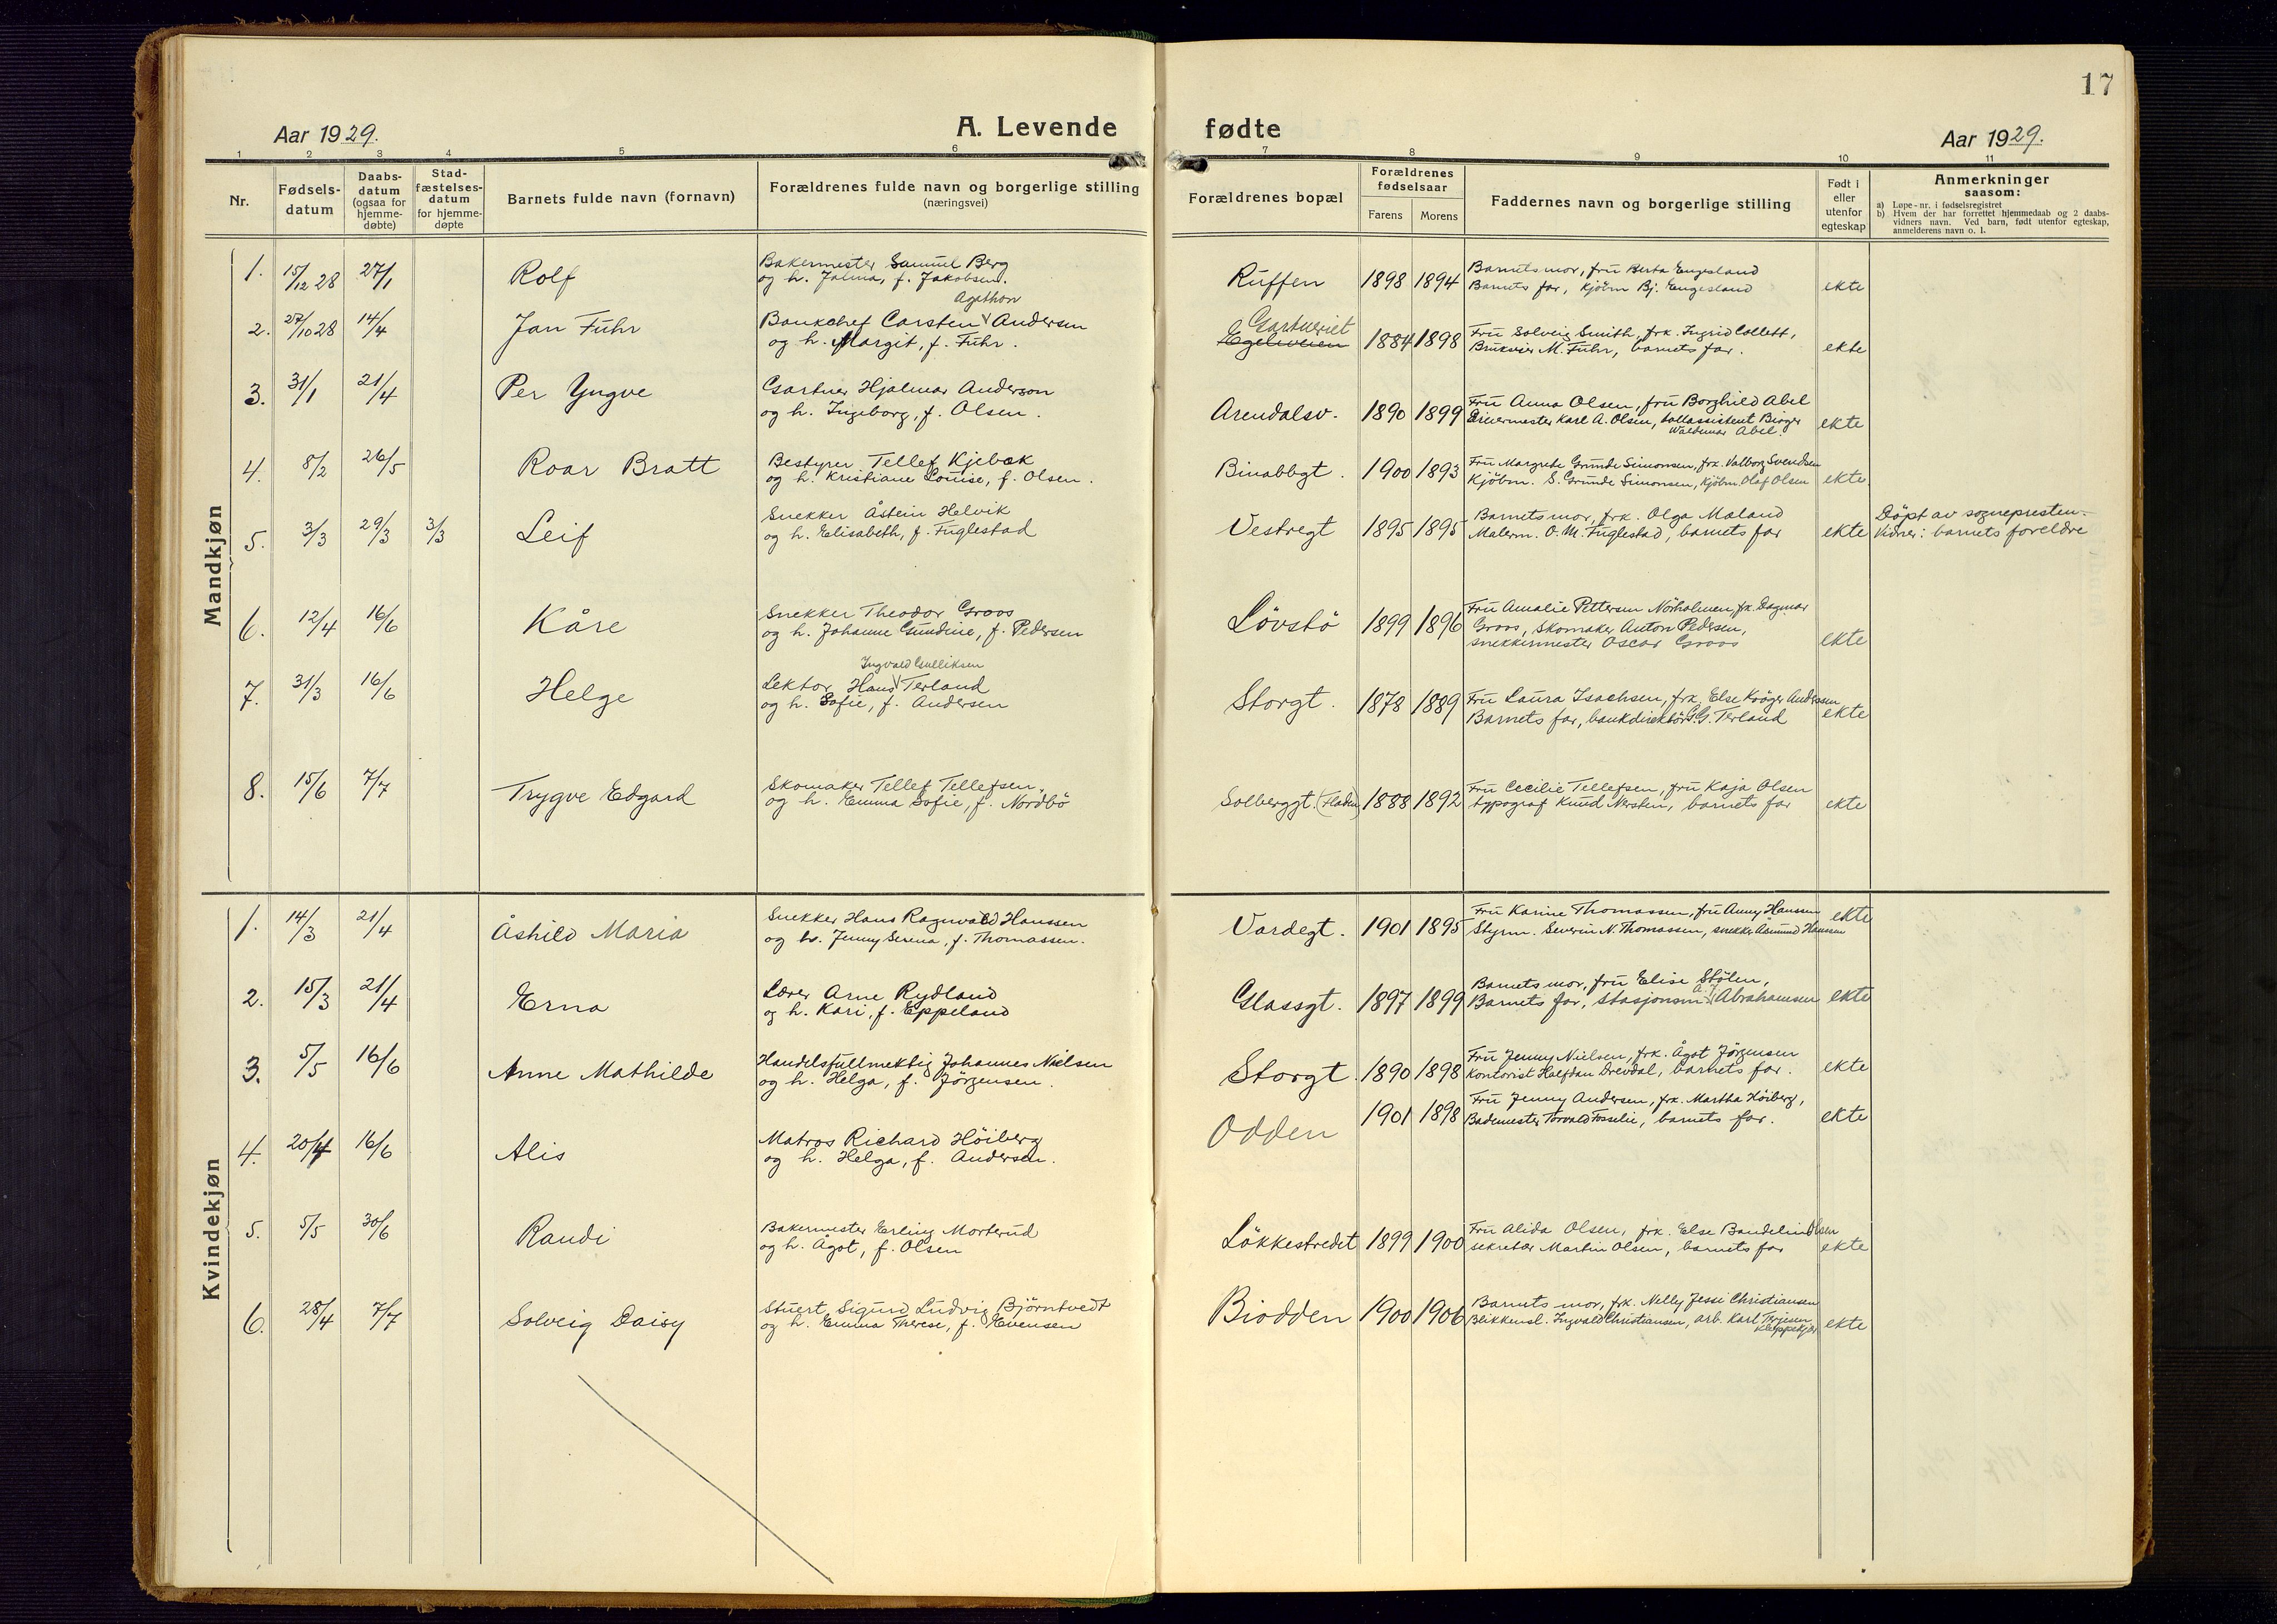 17
Aar 1929.
A. Levende
fødte
Aar 1929.
1 2 3 4 5 6 7 8 9 10 11
Nr.
Fødsels-
datum
Daabs-
datum
(ogsaa for
hjemme-
døbte)
Stad-
fæstelses-
datum
for hjemme-
døpte
Barnets fulde navn (fornavn)
Forældrenes fulde navn og borgerlige stilling
(næringsvei)
Forældrenes bopæl
Forældrenes
fødselsaar
Farens
Morens
Faddernes navn og borgerlige stilling
Født i
eller
utenfor
egteskap
Anmerkninger
saasom:
a) Løpe-nr. i fødselsregistret
b) Hvem der har forrettet hjemmedaab og 2 daabs-
vidners navn. Ved barn, født utenfor egteskap,
anmelderens navn o. l.
Mandkjøn
1. 15/12 28 27/1 Rolf
Bakermester Samuel Berg
og h. Jalma, f. Jakobsen.
Ruffen 1898 1894
Barnets mor, fru Berta Engesland
Barnets far, kjöbm Bj. Engesland
ekte
2. 27/10 28 14/4 Jan Fuhr
Agathon
Bankchef Carsten Andersen
og h. Margit, f. Fuhr.
Gartneriet
Egeliveien 1884 1898
Fru Solveig Smith, frk. Ingrid Collett,
Brukseier M. Fuhr, barnets far.
ekte
3. 31/1 21/4 Per Yngve
Gartner Hjalmar Anderson
og h. Ingeborg, f. Olsen.
Arendalsv. 1890 1899
Fru Anna Olsen, fru Borghild Abel
Karl A. Olsen, tollassistent Birger
Waldemar Abel.
ekte
4. 8/2 26/5 Roar Bratt
Bestyrer Tellef Kjebek
og h. Kristiane Louise, f. Olsen.
Binabbgt. 1900 1893
Fru Margrete Grunde Simonsen, frk. Valborg Svendsen
Kjöbm. S. Grunde Simonsen, Kjöbm. Olaf Olsen
ekte.
5. 3/3 29/3 3/3 Leif
Snekker Åstein Helvik
og h. Elisabeth, f. Fuglestad
Vestregt 1895 1895
Barnets mor, frk. Olga Maland
Malerm. O. M. Fuglestad, barnets far
ekte
Döpt av sognepresten.
Vidner: barnets foreldre
6. 12/4 16/6 Kåre
Snekker Theodor Groos
og h. Johanne Gundine, f. Pedersen
Lövstö 1899 1896
Fru Amalie Pettersen Nörholmen, frk. Dagmar
Groos, skomaker Anton Pedersen,
snekkermester Oscar Groos
ekte
7. 31/3 16/6 Helge
Ingvald Gulliksen
Lektor Hans Terland
og h. Sofie, f. Andersen
Storgt. 1878 1889
Fru Laura Isachsen, frk. Else Kröger Anderssen
Barnets far, bankdirektör G. G. Terland
ekte
8. 15/6 7/7 Trygve Edgard
Skomaker Tellef Tellefsen,
og h. Emma Sofie, f. Nordbö
Solberggt. 1888 1892
Fru Cecilie Tellefsen, fru Kaja Olsen
typograf Knud Nersten, barnets far
ekte
Kvindekjøn
1. 14/3 21/4 Åshild Maria
Snekker Hans Ragnvald Hanssen
og h. Jenny Serena, f. Thomassen.
Vardegt. 1901 1895
Fru Karine Thomassen, fru Anny Hanssen
Styrm. Severin N. Thomassen, snekker Åsmund Hanssen
ekte
2. 15/3 21/4 Erna
Lærer Arne Rydland
og h. Kari, f. Eppeland
Glassgt. 1897 1899
Barnets mor, fru Elise Stölen,
Barnets far, stasjonsm. A. J. Abrahamsen
ekte
3. 5/5 16/6 Anne Mathilde
Handelsfullmektig Johannes Nielsen
og h. Helga, f. Jörgensen.
Storgt. 1890 1898
Fru Jenny Nielsen, frk. Ågot Jörgensen
Kontorist Halfdan Drevdal, barnets far.
ekte
4. 20/4 16/6 Alis
Matros Richard Höiberg
og h. Helga, f. Andersen.
Odden 1901 1898
Fru Jenny Andersen, frk. Martha Höiberg,
Bademester Torvald Fosselie, barnets far.
ekte
5. 5/5 30/6 Randi
Bakermester Erling Morterud
og h. Ågot, f. Olsen
Lökkestredet 1899 1900
Fru Alida Olsen, frk. Else Bandelin Olsen
sekretær Martin Olsen, barnets far
ekte
6. 28/4 7/7 Solveig Daisy
Stuert Sigurd Ludvig Björntvedt
og h. Emma Therese, f. Evensen
Biodden 1900 1906
Barnets mor, frk. Nelly Jessi Christiansen
Blikkensl. Ingvald Christiansen, arb. Karl Terjesen
Kleppekjær
ekte